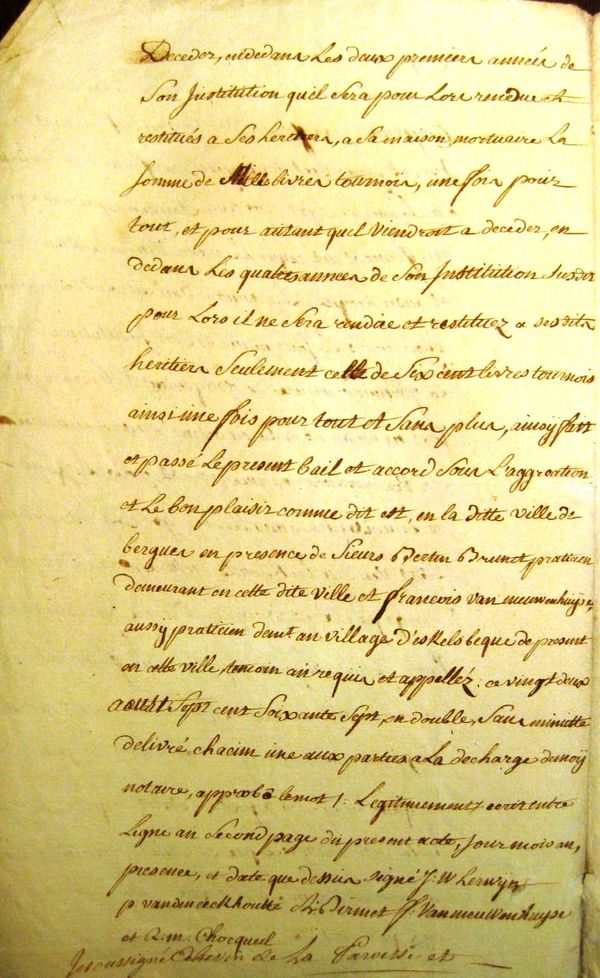 Deceder, endedans Les deux premiers année de
Son Institution quil Sera pour Lors rendue et
restitués a Ses heretiers, a Sa maison mortuaire La
Somme de Mille livres tournois, une fois pour
tout, et pour autant quil Viendroit a deceder, en
dedans Les quatres années de Son Institution
pour Lors il ne Sera rendüe et restituez a sesdits
heritiers Seulement celle de Six cent livres tournois
ainsi une fois pour tout et Sans plus, ainsy fait
et passé Le present bail et accord Sous L'aggreation
et Le bon plaisir comme dit est, en la ditte ville de
bergues en presence de Sieurs Bertin Brunet praticien
demeurant en cette dite Ville et françois van nieuwenhuyse
aussy praticien demt. au village d'eskelsbeque de present
en cette ville, temoin a requis et appelléz, ce vingt deux
aoust Sept cent Soixante Sept, en double, Sans minutte
delivré chacun une aux parties a La decharge de moÿ
notaire, approbé le mot /: Legitimement :/ ecrit entre
Ligne au Second page du present acte, Jour mois an,
presence, et date que dessus signé J: W
p. vandeneeckhoutte F. Vannieuwenhuyse
et Chocqueil
Je soussigné Echevin de La Paroisse et